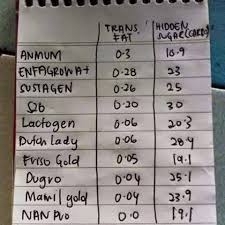 TRANS FAT HIDDEN SUGAR (CARBO)
ANMUM 0.3 18.9
ENFAGROW A+ 0.28 23
SUSTAGEN 0.26 25
S26 0.20 30
Lactogen 0.06 20.3
Dutch lady 0.06 28.4
Friso Gold 0.05 19.1
Dugro 0.04 25.1
Mamil gold 0.04 23.9
NAN Pro 0.0 19.1